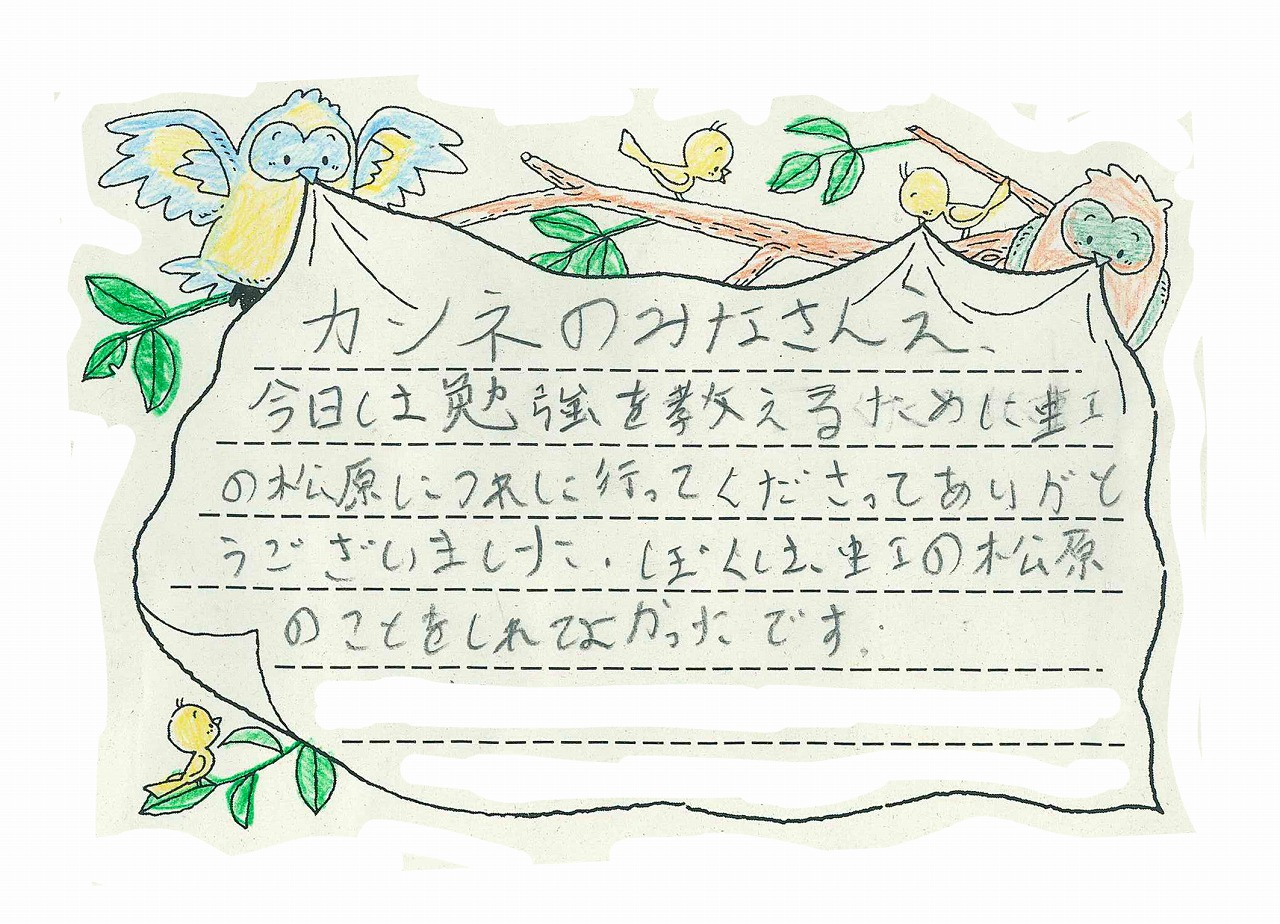 カンネのみなさんえ、
今日は勉強を教えるために虹
の松原につれに行ってくださってありがと
うございました。ぼくは、虹の松原
のことをしれてよかったです。